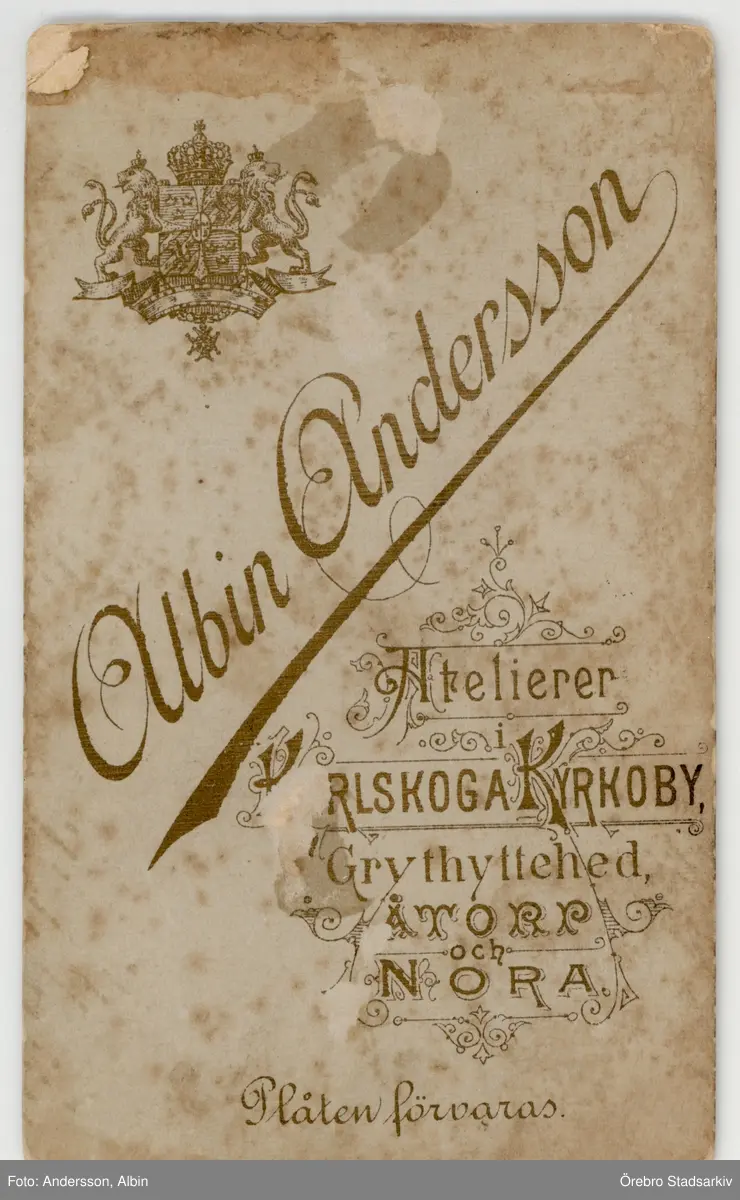 Albin Andersson
Atelierer
i
RLSKOGA KYRKOBY,
Grythyttehed,
ÅTORP
och
NORA.
Plåten förvaras.
Foto: Andersson, Albin
Örebro Stadsarkiv